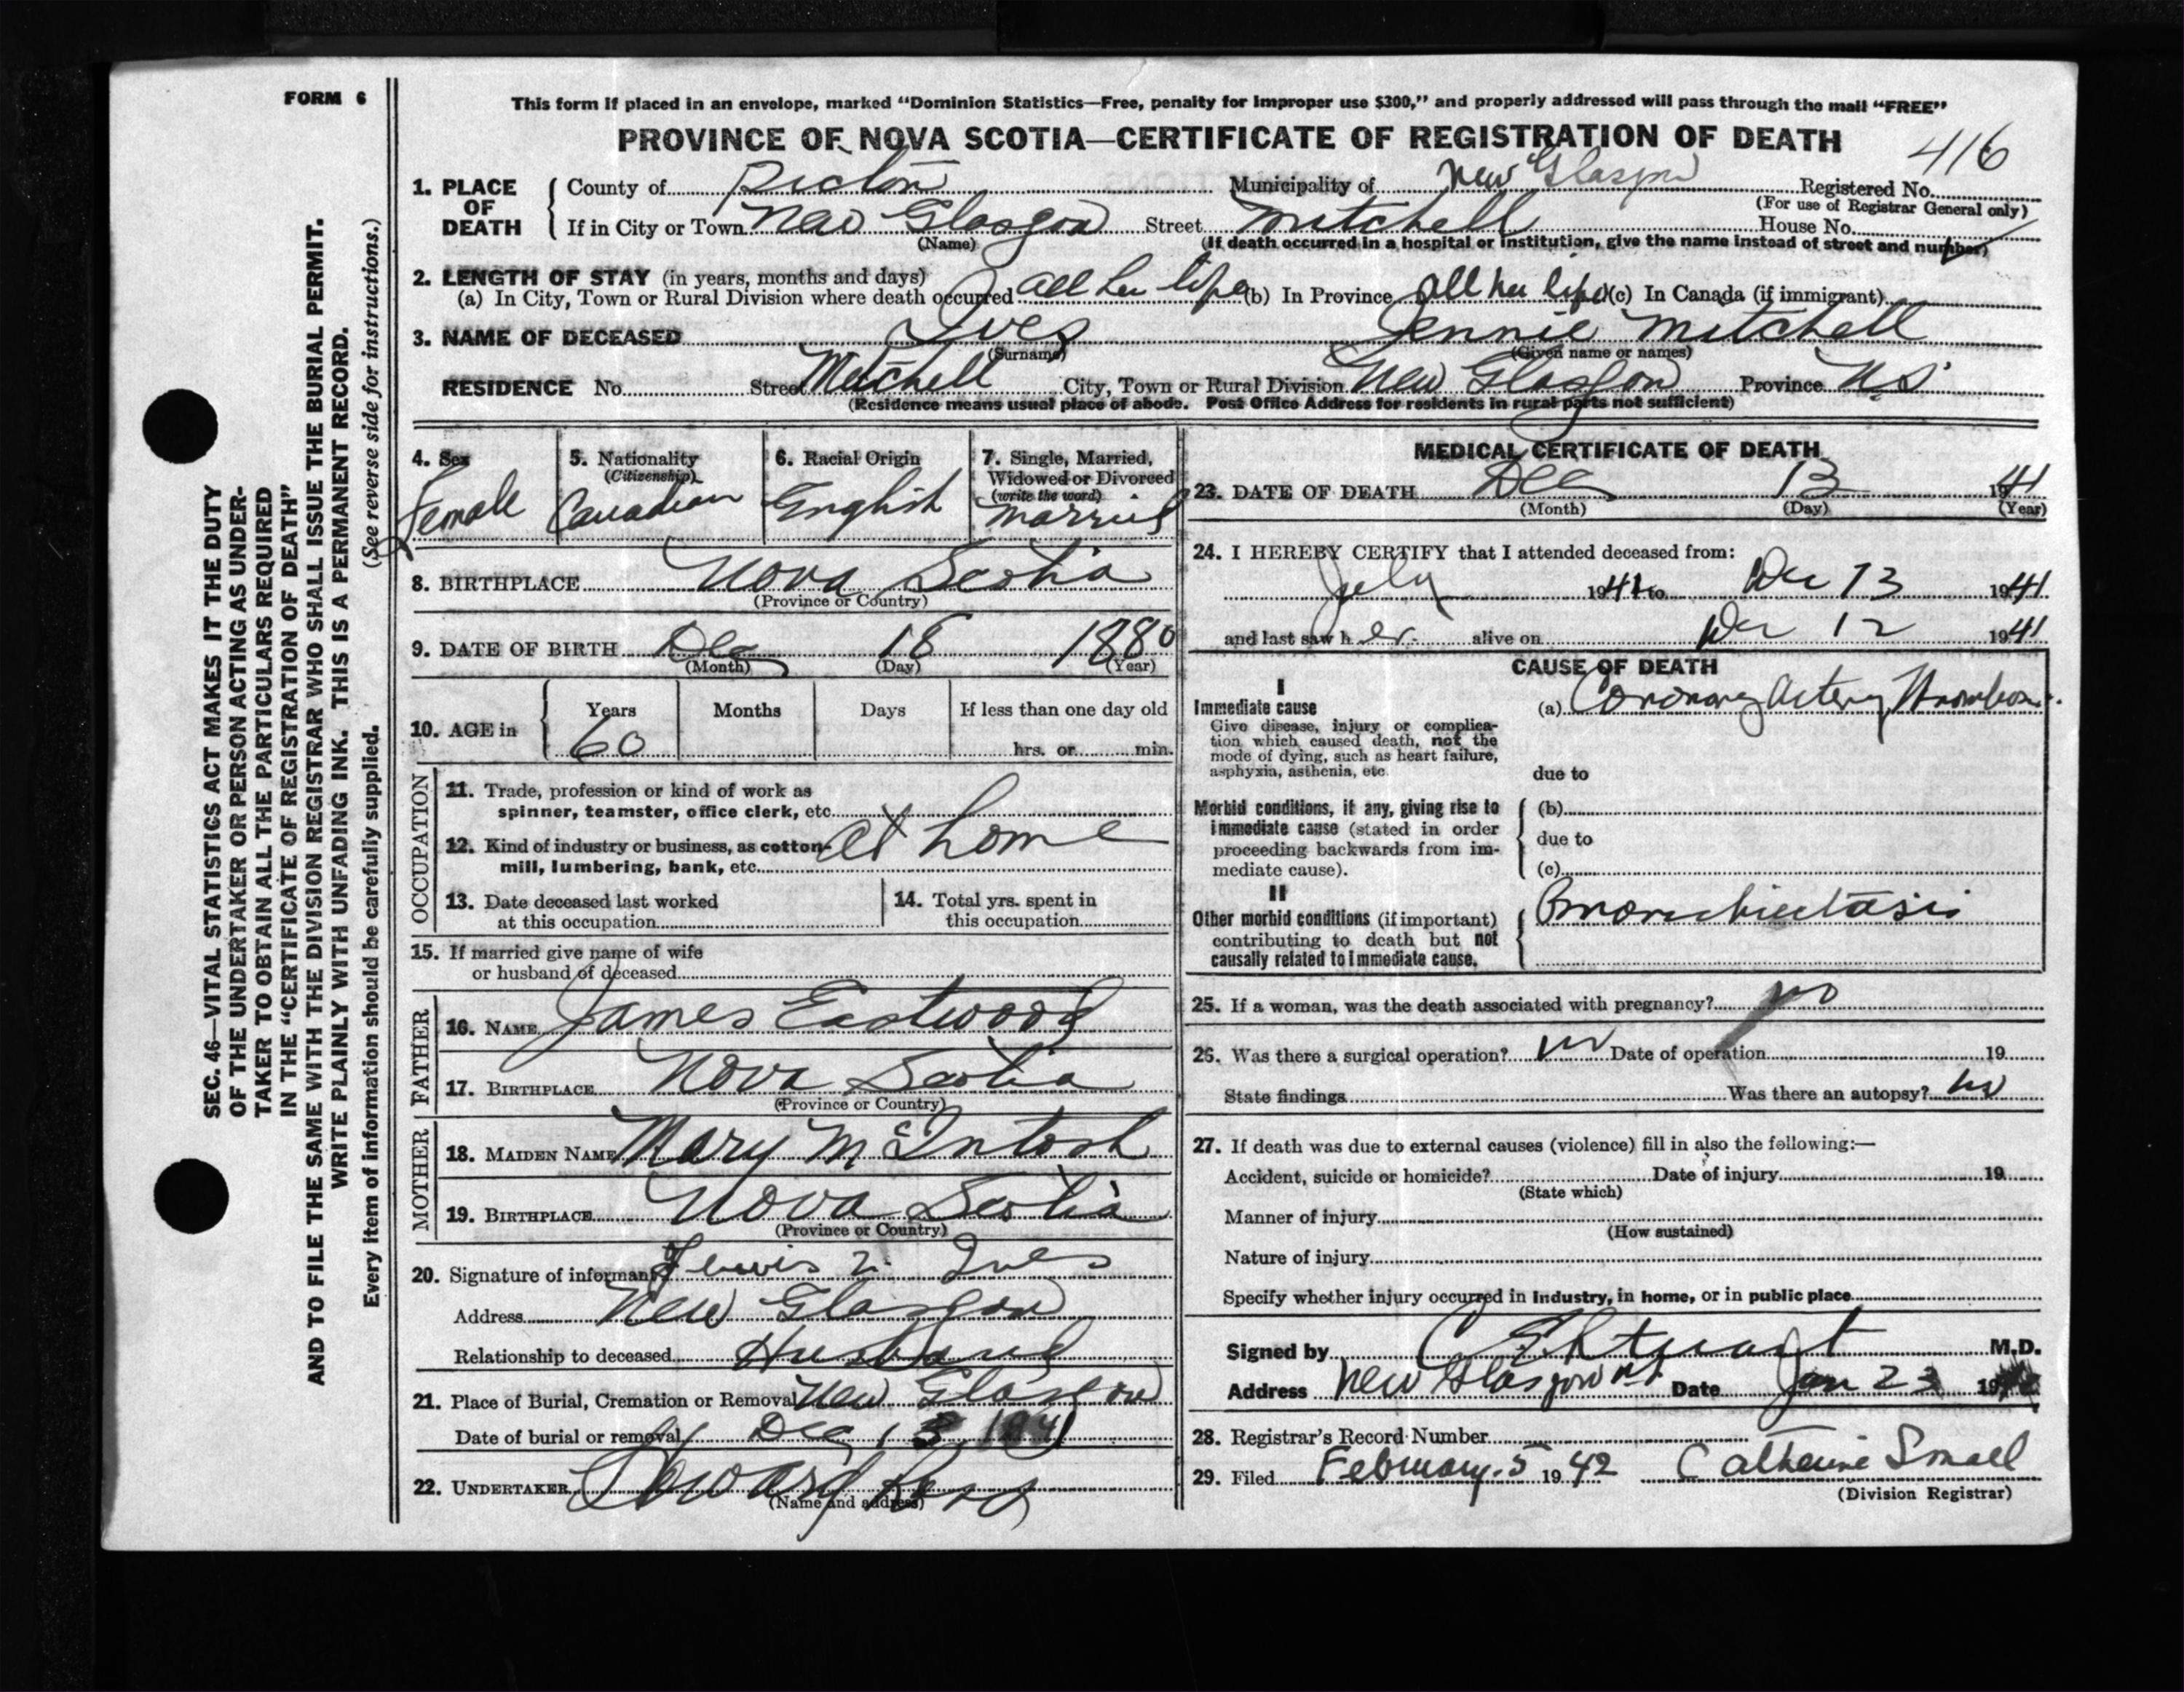 FORM 6
SEC. 46—VITAL STATISTICS ACT MAKES IT THE DUTY
OF THE UNDERTAKER OR PERSON ACTING AS UNDER-
TAKER TO OBTAIN ALL THE PARTICULARS REQUIRED
IN THE "CERTIFICATE OF REGISTRATION OF DEATH"
AND TO FILE THE SAME WITH THE DIVISION REGISTRAR WHO SHALL ISSUE THE BURIAL PERMIT.
WRITE PLAINLY WITH UNFADING INK. THIS IS A PERMANENT RECORD.
Every item of information should be carefully supplied. (See reverse side for instructions.)
This form if placed in an envelope, marked "Dominion Statistics—Free, penalty for improper use $300," and properly addressed will pass through the mail "FREE"
PROVINCE OF NOVA SCOTIA—CERTIFICATE OF REGISTRATION OF DEATH
416
1. PLACE OF DEATH County of Pictou Municipality of New Glasgow Registered No.
(For use of Registrar General only)
If in City or Town New Glasgow Street Mitchell House No.
(Name) (If death occurred in a hospital or institution, give the name instead of street and number)
2. LENGTH OF STAY (in years, months and days)
(a) In City, Town or Rural Division where death occurred all her life (b) In Province all her life (c) In Canada (if immigrant)
3. NAME OF DECEASED Ives Jennie Mitchell
(Surname) (Given name or names)
RESIDENCE No. Street Mitchell City, Town or Rural Division New Glasgow Province N.S.
(Residence means usual place of abode. Post Office Address for residents in rural parts not sufficient)
4. Sex 5. Nationality 6. Racial Origin 7. Single, Married,
(Citizenship) Widowed or Divorced
(write the word)
Female Canadian English Married
8. BIRTHPLACE Nova Scotia
(Province or Country)
9. DATE OF BIRTH Dec 18 1880
(Month) (Day) (Year)
10. AGE in Years Months Days If less than one day old
60 hrs. or min.
OCCUPATION
11. Trade, profession or kind of work as
spinner, teamster, office clerk, etc.
12. Kind of industry or business, as cotton- at home
mill, lumbering, bank, etc.
13. Date deceased last worked
at this occupation
14. Total yrs. spent in
this occupation
15. If married give name of wife
or husband of deceased
FATHER
16. NAME James Eastwood
17. BIRTHPLACE Nova Scotia
(Province or Country)
MOTHER
18. MAIDEN NAME Mary McIntosh
19. BIRTHPLACE Nova Scotia
(Province or Country)
20. Signature of informant Lewis Ives
Address New Glasgow
Relationship to deceased Husband
21. Place of Burial, Cremation or Removal New Glasgow
Date of burial or removal Dec 1941
22. UNDERTAKER
(Name and address)
MEDICAL CERTIFICATE OF DEATH
23. DATE OF DEATH Dec 13 1941
(Month) (Day) (Year)
24. I HEREBY CERTIFY that I attended deceased from:
July 1941 to Dec 13 1941
and last saw h er alive on Dec 12 1941
CAUSE OF DEATH
I
Immediate cause
Give disease, injury or complica-
tion which caused death, not the
mode of dying, such as heart failure,
asphyxia, asthenia, etc.
(a) Coronary Artery Thrombosis
due to
Morbid conditions, if any, giving rise to
immediate cause (stated in order
proceeding backwards from im-
mediate cause).
(b)
due to
(c)
II
Other morbid conditions (if important)
contributing to death but not
causally related to immediate cause.
Bronchiectasis
25. If a woman, was the death associated with pregnancy? no
26. Was there a surgical operation? no Date of operation 19
State findings Was there an autopsy? no
27. If death was due to external causes (violence) fill in also the following:—
Accident, suicide or homicide? Date of injury 19
(State which)
Manner of injury
(How sustained)
Nature of injury
Specify whether injury occurred in industry, in home, or in public place
Signed by Stuart M.D.
Address New Glasgow Date Jan 23 19
28. Registrar's Record Number
29. Filed February 5 1942 Catherine Small
(Division Registrar)